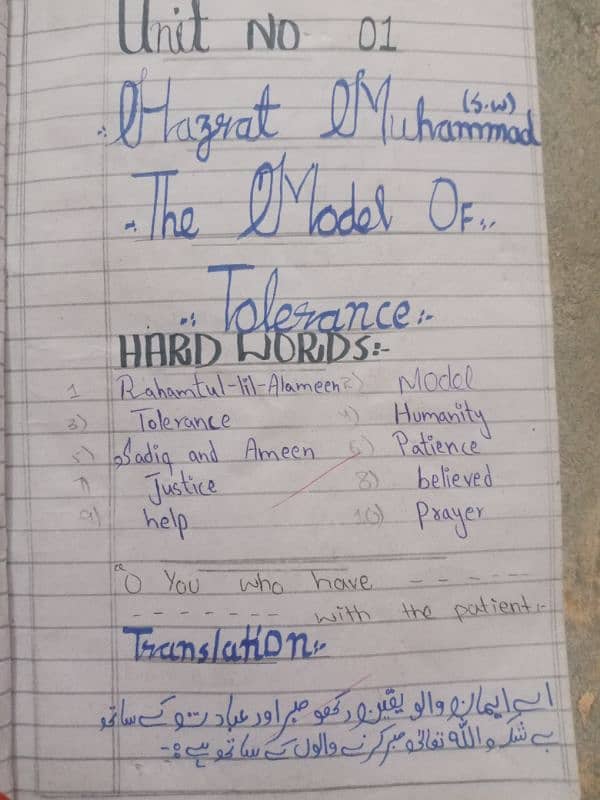 Unit NO 01
Hazrat Muhammad (S.W)
The Model OF
Tolerance:-
HARD WORDS:-
1 Rahamtul-lil-Alameen 2) Model
3) Tolerance 4) Humanity
5) Sadiq and Ameen 6) Patience
7) Justice 8) believed
9) help 10) Prayer
"O You who have - - - - - -
- - - - - - - with the patient:-
Translation:-
اے ایمان والو یقین رکھو صبر اور عبادت کے ساتھ
بے شک اللہ تعالیٰ صبر کرنے والوں کے ساتھ ہے:-